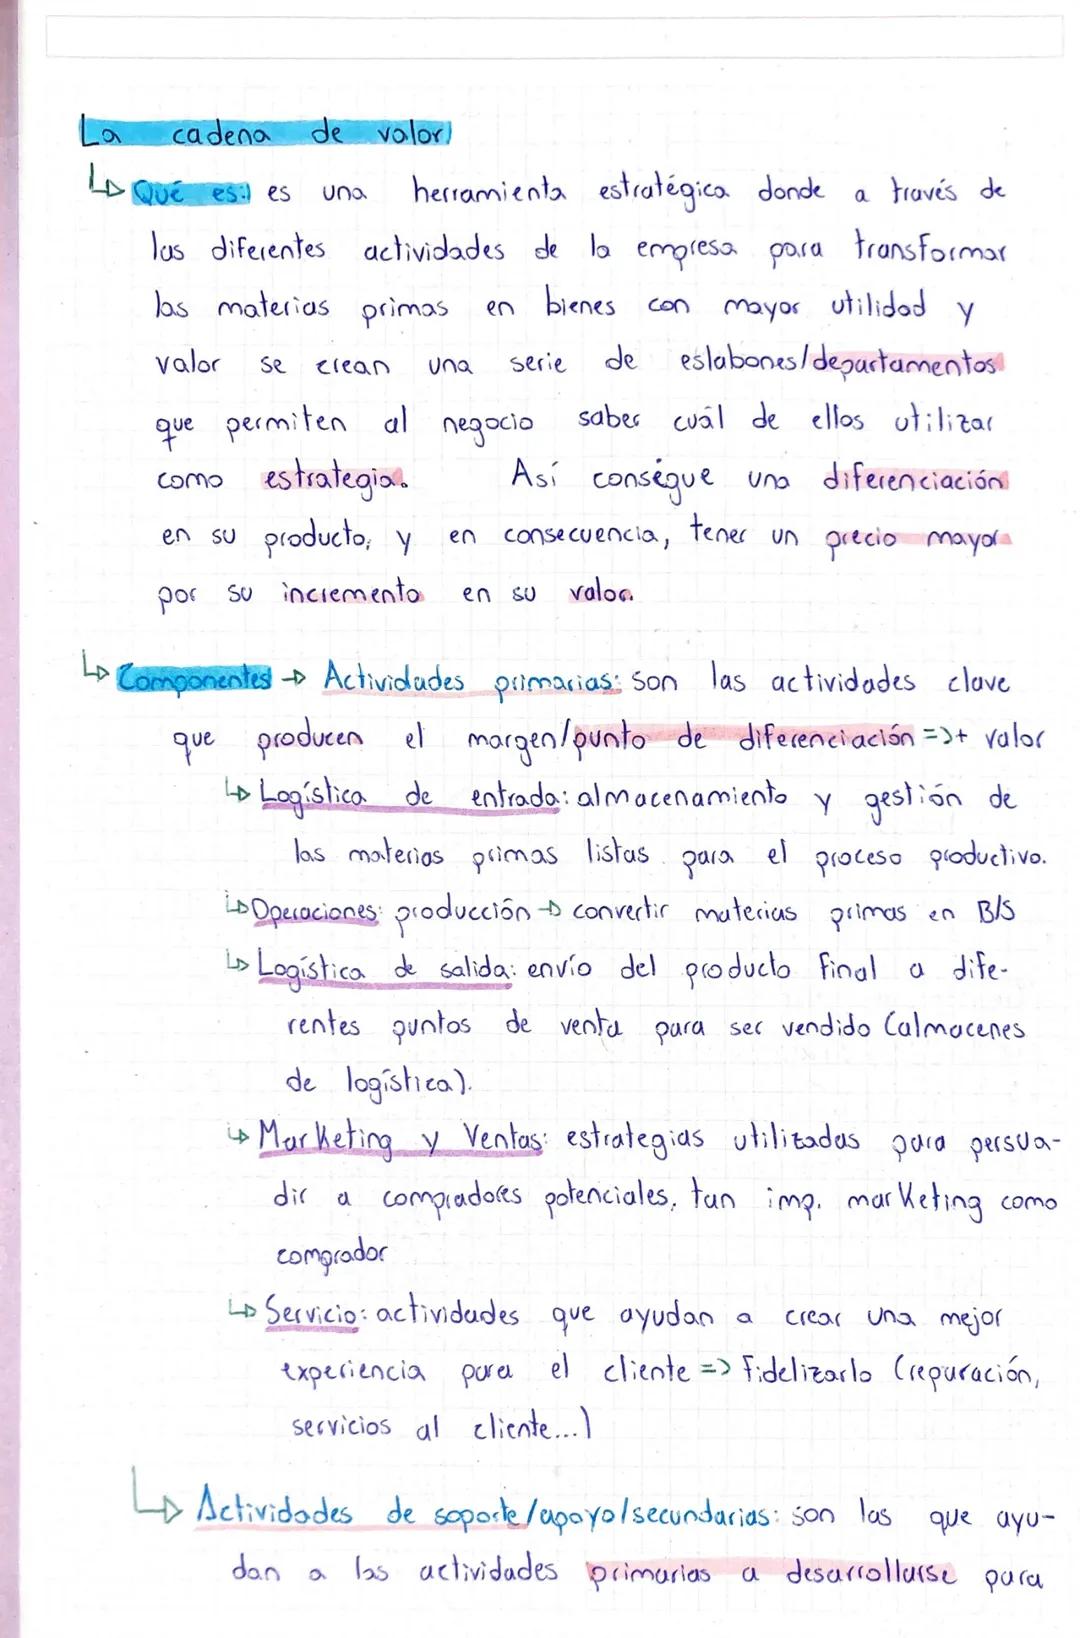 La cadena de valor
↳ Qué es: es una herramienta estratégica donde a través de
las diferentes actividades de la empresa para transformar
las materias primas en bienes con mayor utilidad y
valor se crean una serie de eslabones/departamentos
que permiten al negocio saber cuál de ellos utilizar
como estrategia. Así consigue una diferenciación
en su producto, y en consecuencia, tener un precio mayor
por su incremento en su valor.
↳ Componentes → Actividades primarias: son las actividades clave
que producen el margen/punto de diferenciación => + valor
↳ Logística de entrada: almacenamiento y gestión de
las materias primas listas para el proceso productivo.
↳ Operaciones: producción → convertir materias primas en B/S
↳ Logística de salida: envío del producto final a dife-
rentes puntos de venta para ser vendido (almacenes
de logística).
↳ Marketing y Ventas: estrategias utilizadas para persua-
dir a compradores potenciales. tan imp. marketing como
comprador
↳ Servicio: actividades que ayudan a crear una mejor
experiencia para el cliente => fidelizarlo (reparación,
servicios al cliente...)
↳ Actividades de soporte/apoyo/secundarias: son las que ayu-
dan a las actividades primarias a desarrollarse para